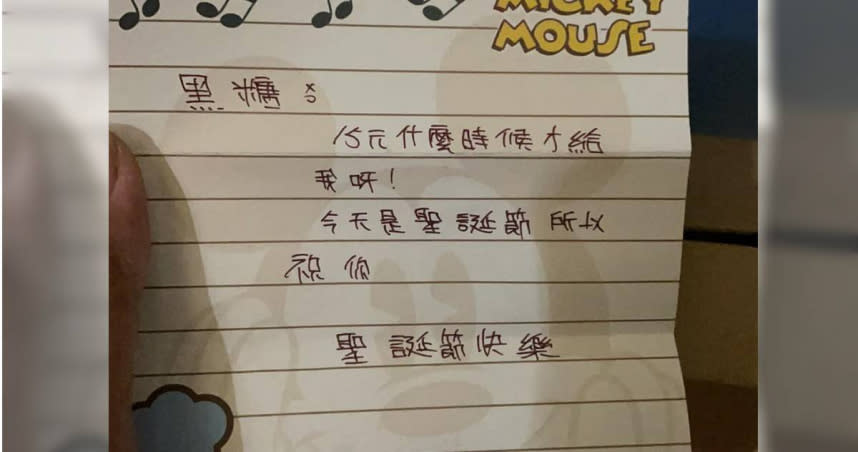 MICKEY
MOUSE
黑糖:
15元什麼時候才給
我呀!
今天是聖誕節所以
祝你
聖誕節快樂